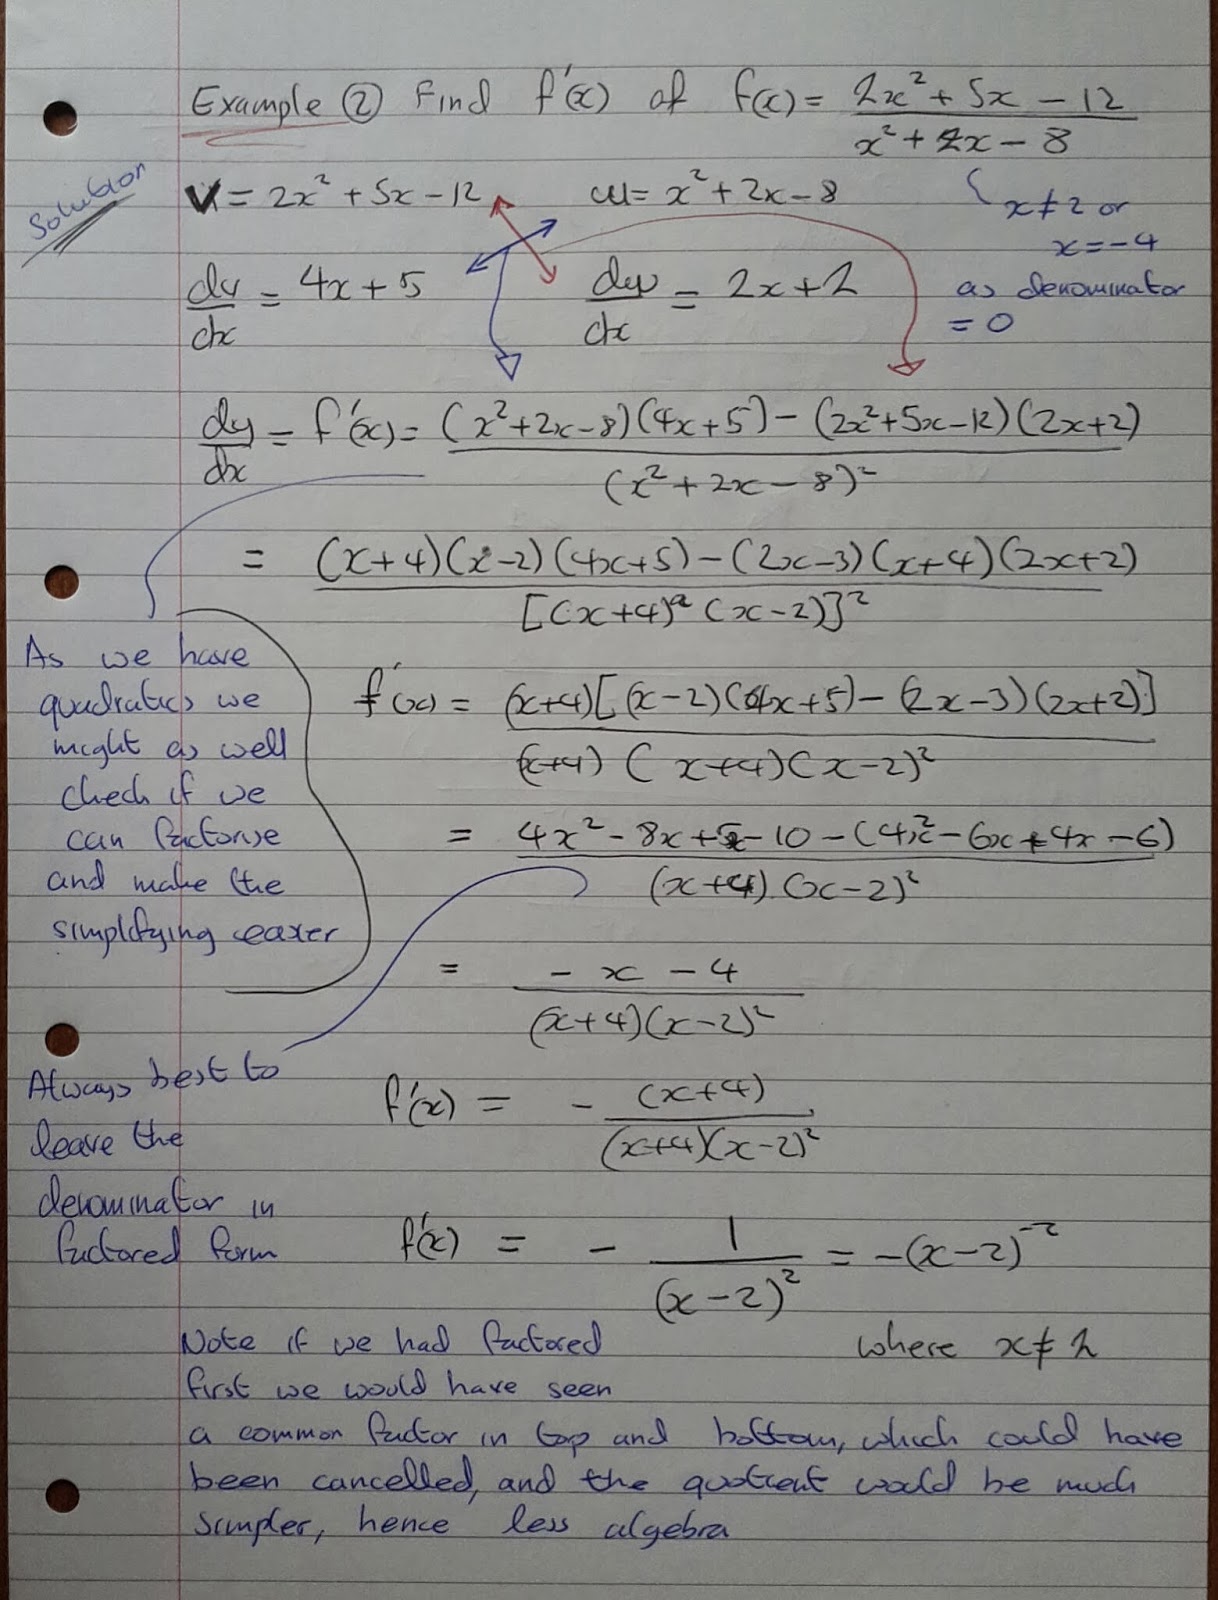 Example ② Find f'(x) of f(x) = (2x² + 5x - 12)/(x² + 2x - 8)
Solution
V = 2x² + 5x - 12
u = x² + 2x - 8
{ x ≠ 2 or
x = -4
as denominator
= 0
dv/dx = 4x + 5
du/dx = 2x + 2
dy/dx = f'(x) = ((x² + 2x - 8)(4x + 5) - (2x² + 5x - 12)(2x + 2))/(x² + 2x - 8)²
= ((x+4)(x-2)(4x+5) - (2x-3)(x+4)(2x+2))/[(x+4)(x-2)]²
As we have
quadratics we
might as well
check if we
can factorise
and make the
simplifying easier
f'(x) = (x+4)[(x-2)(4x+5) - (2x-3)(2x+2)]/(x+4)(x+4)(x-2)²
= (4x² - 8x + 5x - 10 - (4x² - 6x + 4x - 6))/(x+4)(x-2)²
= (-x - 4)/(x+4)(x-2)²
Always best to
leave the
denominator in
factored form
f'(x) = - (x+4)/(x+4)(x-2)²
f'(x) = - 1/(x-2)² = -(x-2)⁻²
where x ≠ 2
Note if we had factored
first we would have seen
a common factor in top and bottom, which could have
been cancelled, and the quotient would be much
simpler, hence less algebra